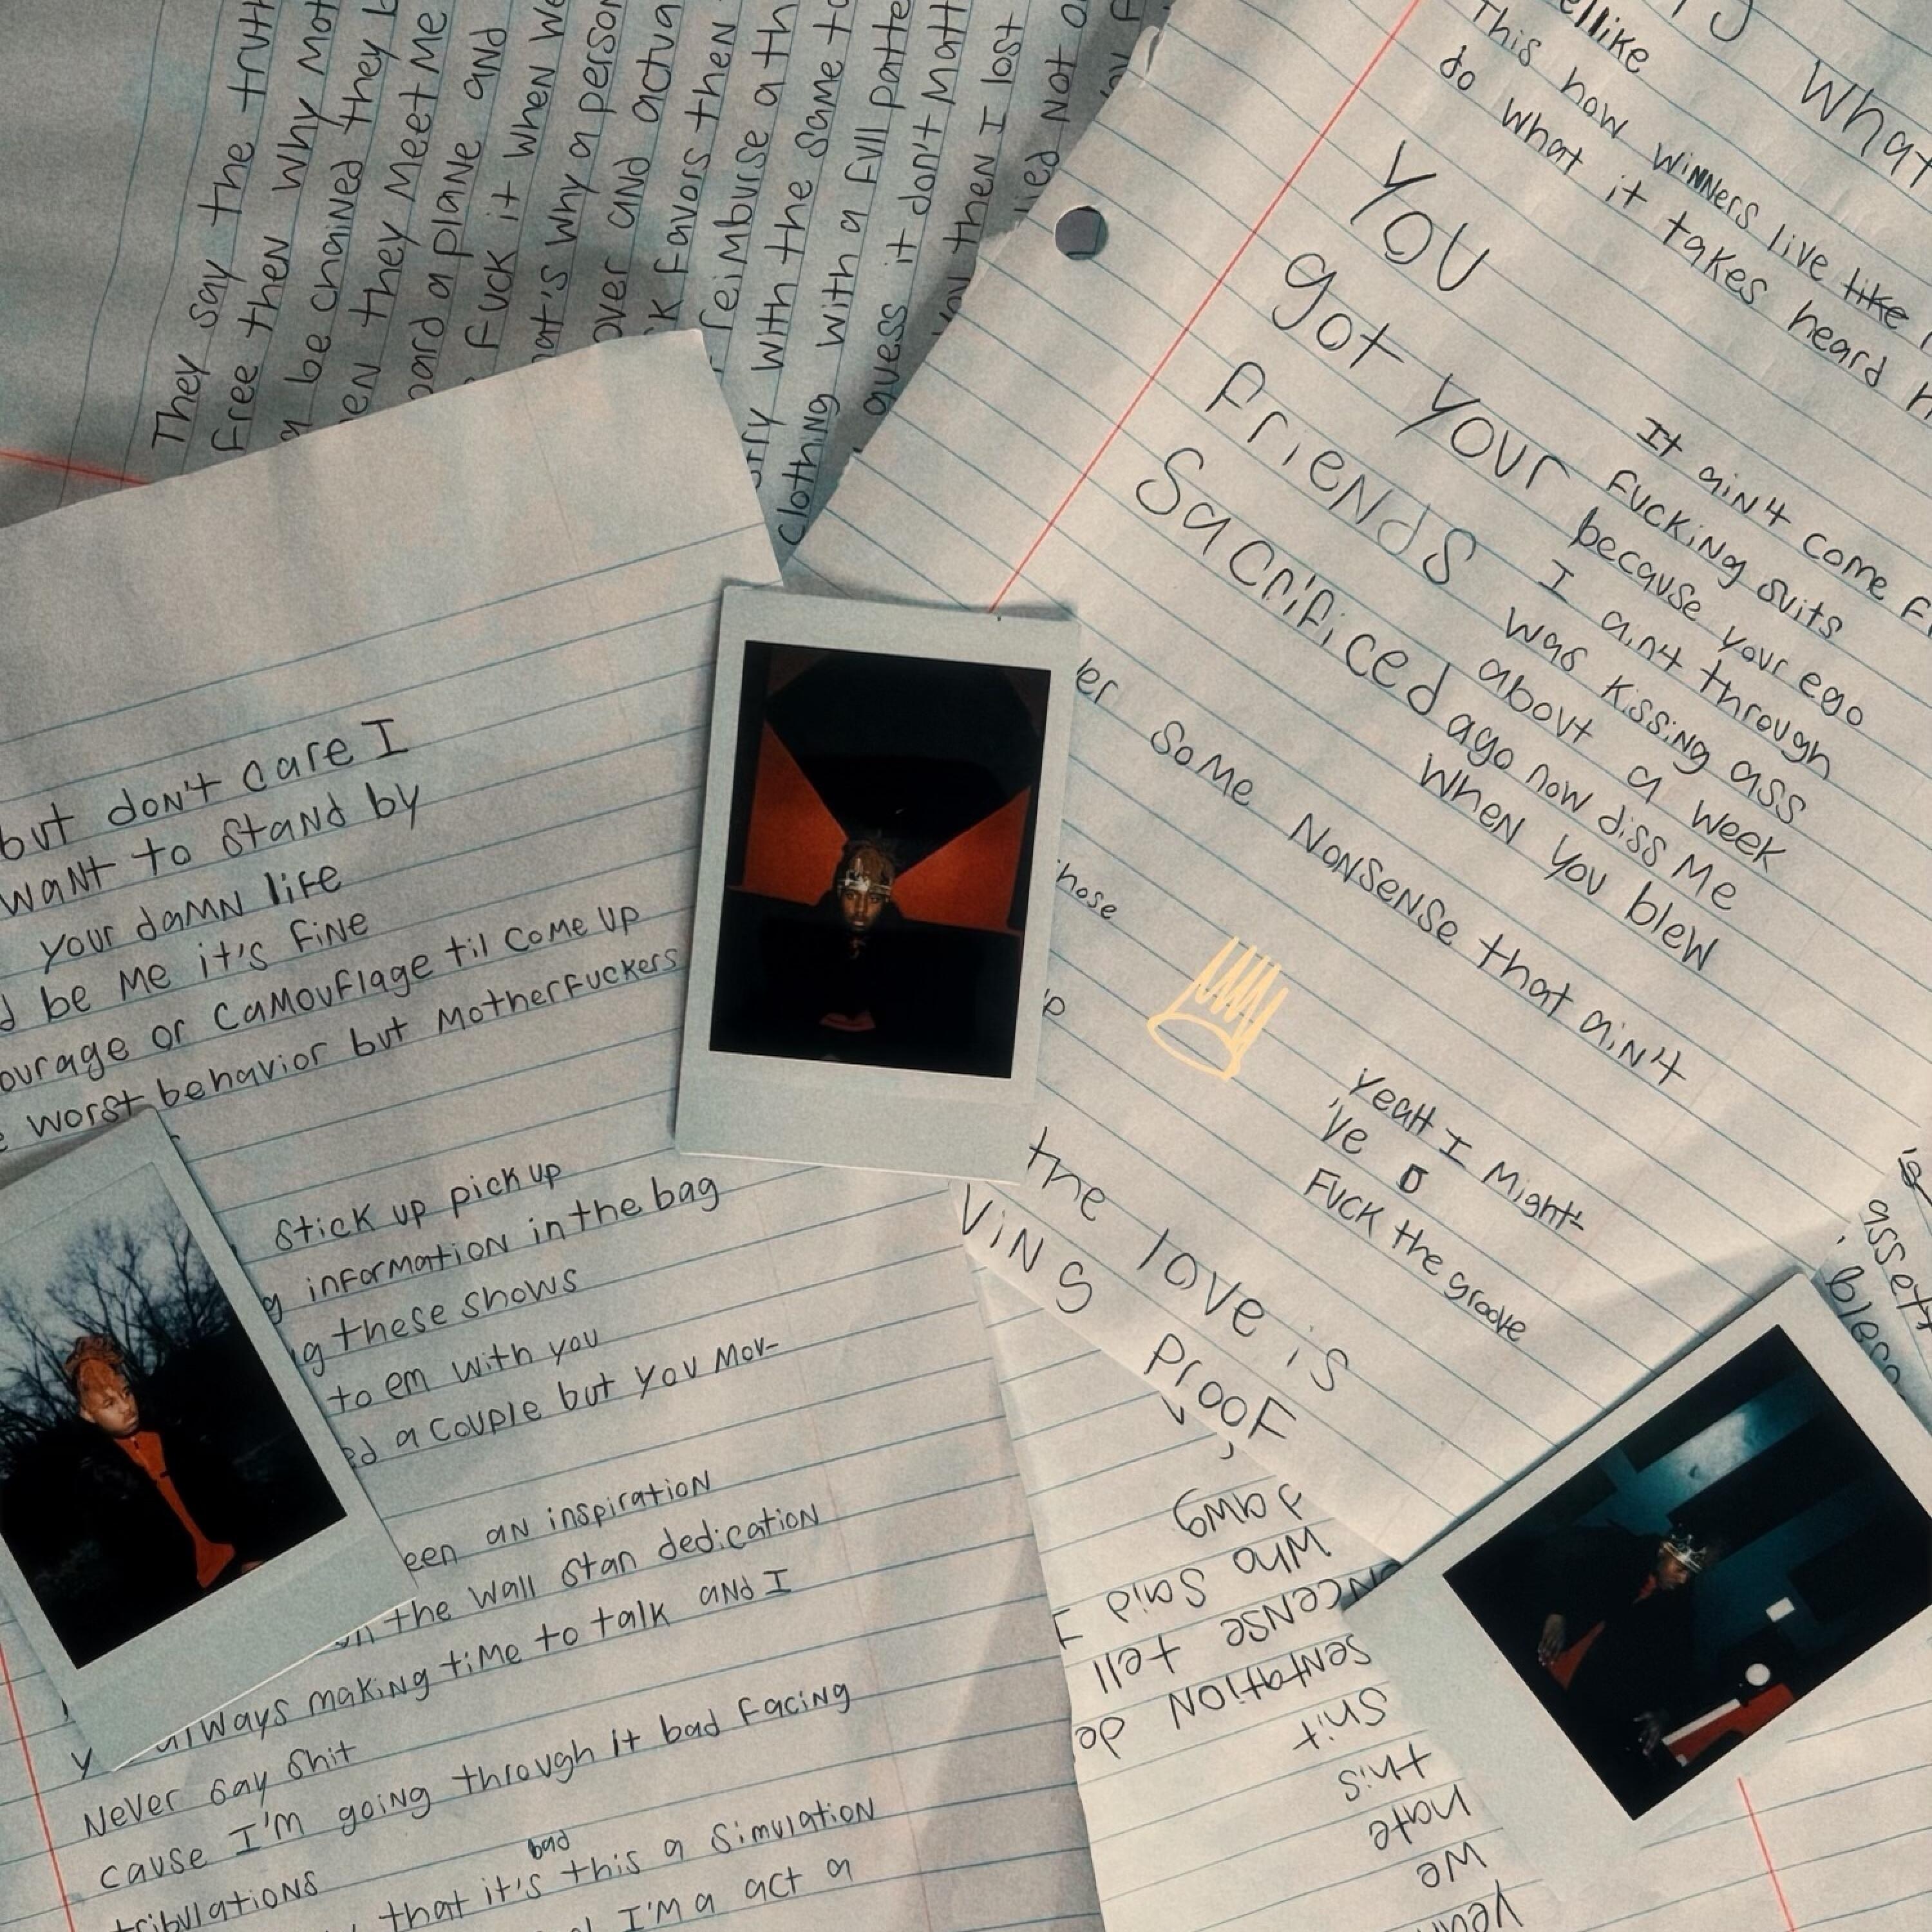 They say the truth
Free then why mot
a be chained they b
en they meet me
oard a plane and
fuck it when we
hat's why a person
over and actua
ck favors then
reimburse a th
orry with the same to
clothing with a full patte
guess it don't matt
you then I lost
lied not a
ellike
What
This how winners live like
do what it takes heard
YOU
got your
friends
Sacrificed
It ain't come f
fucking suits
because your ego
I ain't through
was kissing ass
about a week
ago now diss me
when you blew
ver some nonsense that ain't
hose
up
Yeah I might
've
Fuck the groove
the love is
ving
proof
but don't care I
want to stand by
your damn life
d be me it's fine
ourage or camouflage til come up
e worst behavior but motherfuckers
stick up pick up
g information in the bag
g these shows
to em with you
ed a couple but you mov-
een an inspiration
on the wall stan dedication
y always making time to talk and I
never say shit
cause I'm going through it bad facing
tribulations
bad
that it's this a simulation
I'm a act a
asset
bless
Jawg
Who said I
ncense tell
sentation de
shit
this
hate
we
yeah